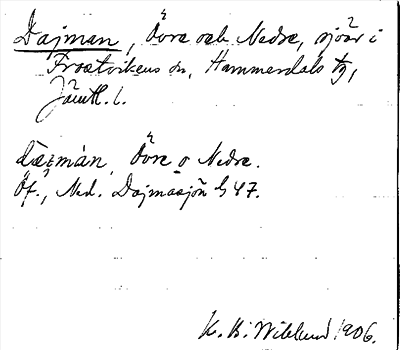 Dajman, Övre och Nedre, sjöar i
Frostvikens sn, Hammerdals tg,
Jämtl. l.
dæi̯mán, Övre o Nedre.
Öf., Ned. Dajmasjön G 47.
K. B. Wiklund 1906.